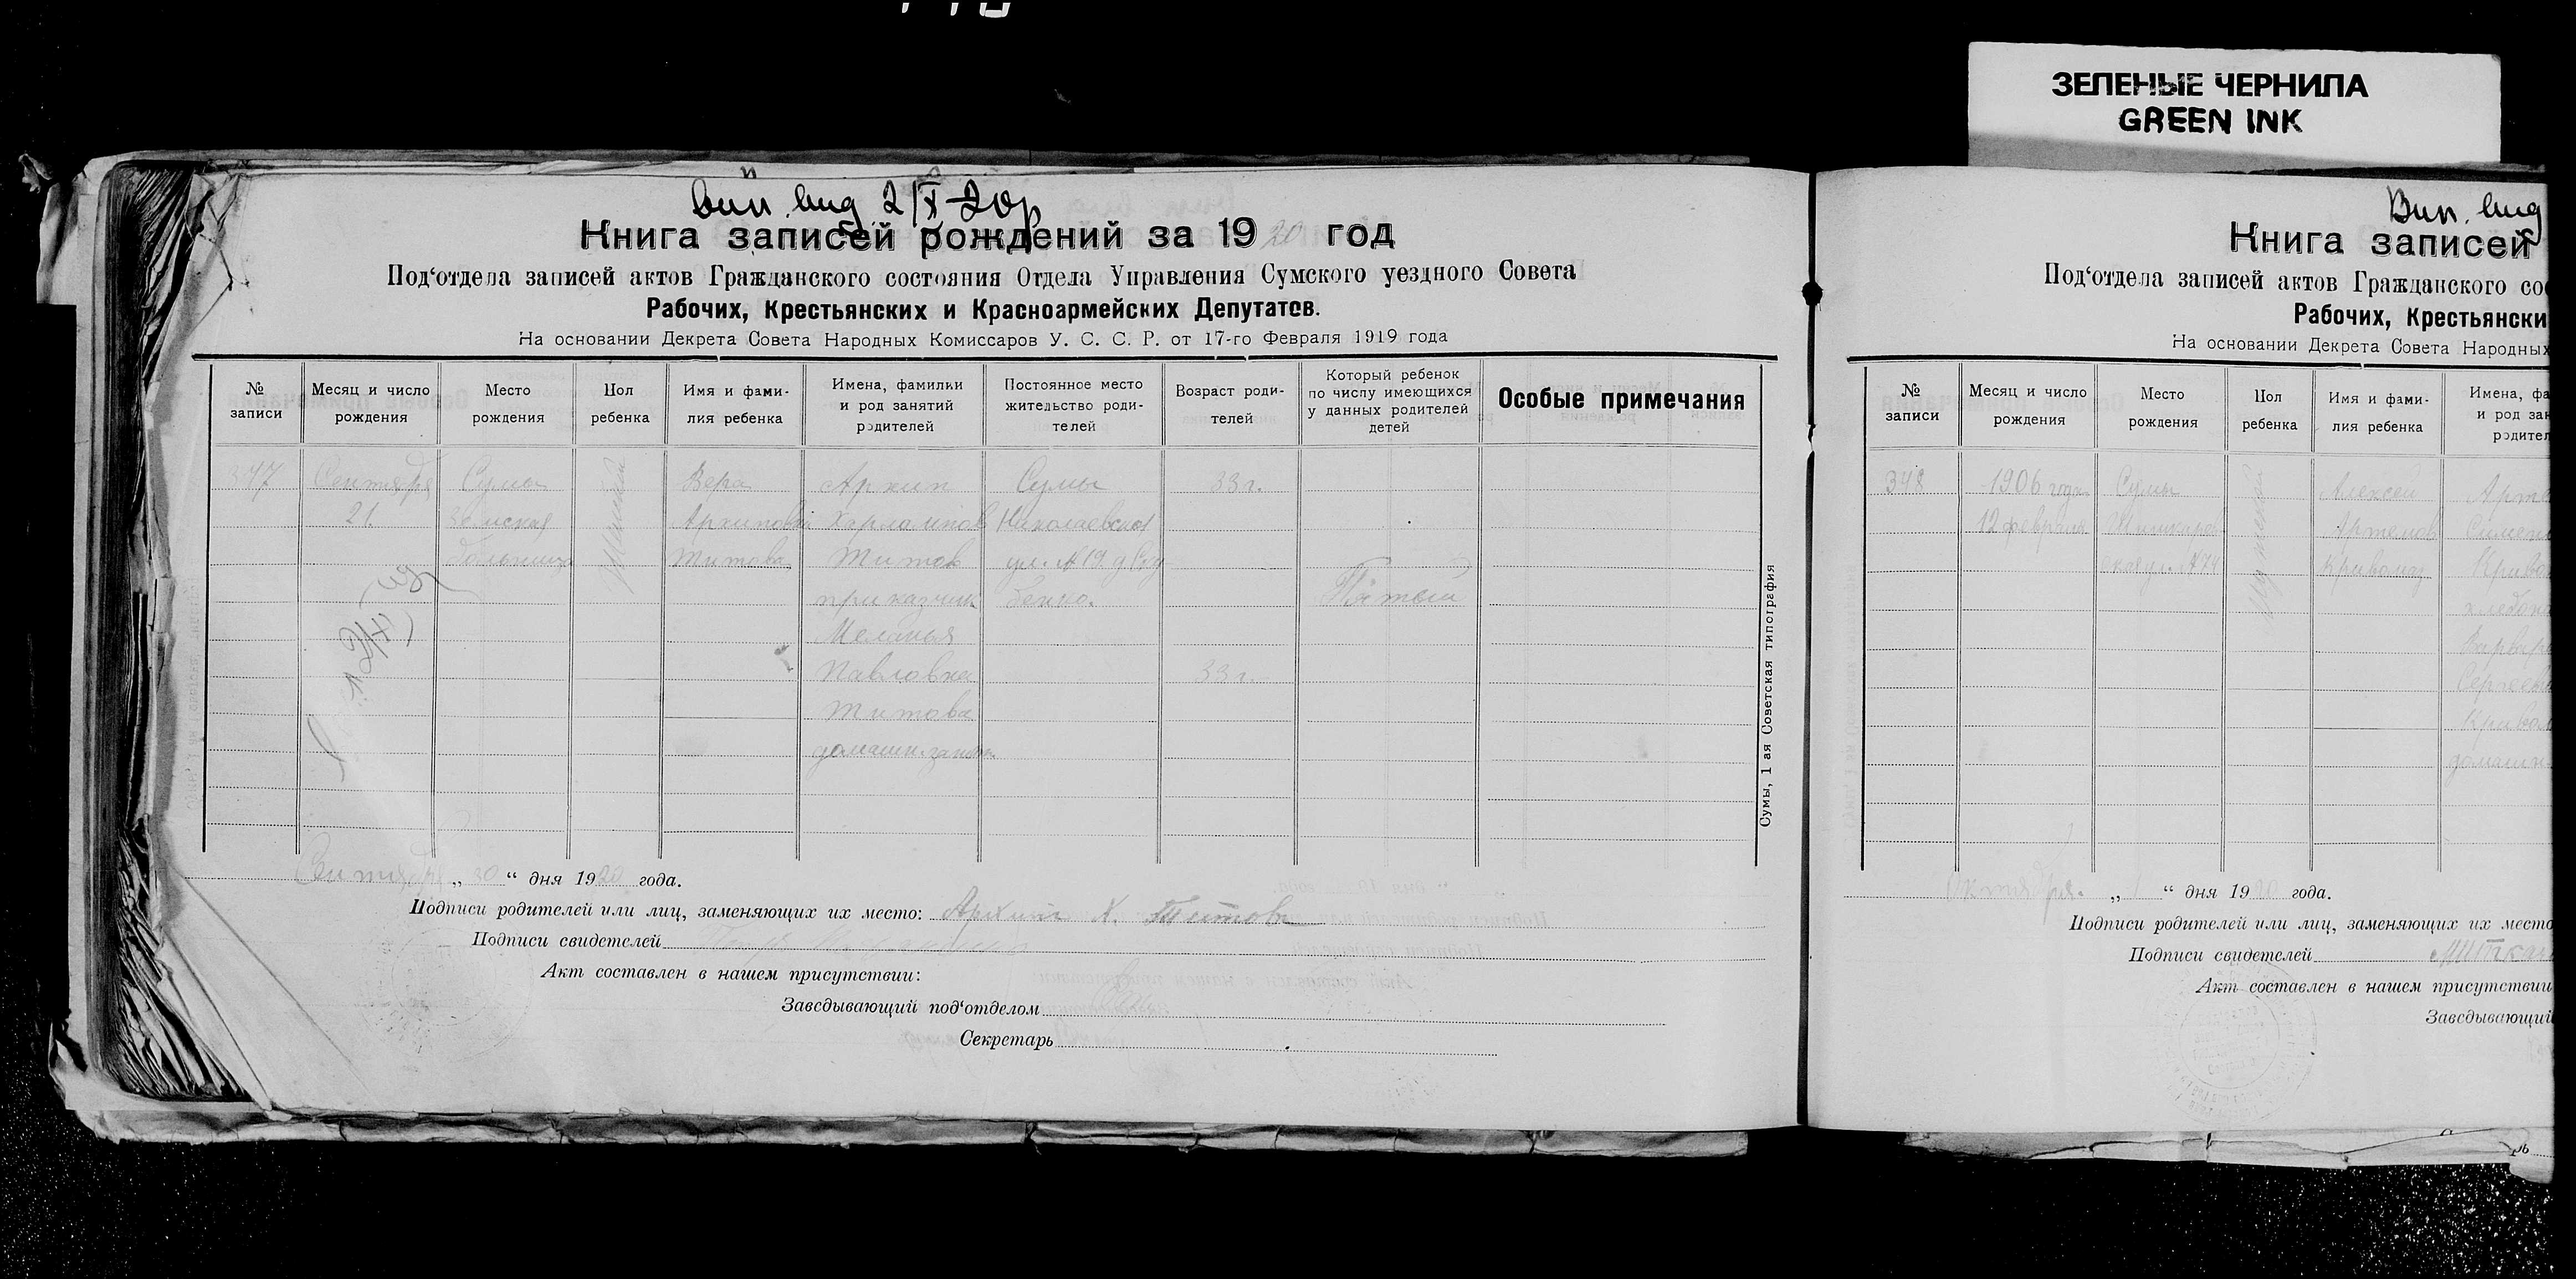 ЗЕЛЕНЫЕ ЧЕРНИЛА
GREEN INK
Вип. вид 2/X-20р
Книга записей рождений за 1920 год
Под‘отдела записей актов Гражданского состояния Отдела Управления Сумского уездного Совета
Рабочих, Крестьянских и Красноармейских Депутатов.
На основании Декрета Совета Народных Комиссаров У. С. С. Р. от 17-го Февраля 1919 года
№ записи
Месяц и число рождения
Место рождения
Пол ребенка
Имя и фамилия ребенка
Имена, фамилии и род занятий родителей
Постоянное место жительство родителей
Возраст родителей
Который ребенок по числу имеющихся у данных родителей детей
Особые примечания
347
Сентября
21
Сумы
Земская
больница
Женский
Вера
Архиповна
Титова
Архип
Харлампов
Титов
приказчик
Меланья
Павловна
Титова
домашн. занят.
Сумы
Николаевская
ул. №19. д
бенко.
33 г.
33 г.
Пятый
Сентября „ 30 “ дня 1920 года.
Подписи родителей или лиц, заменяющих их место: Архип Х. Титов
Подписи свидетелей
Акт составлен в нашем присутствии:
Заведывающий под‘отделом
Секретарь
Сумы, 1 ая Советская типография
Вип. вид
Книга записей
Под‘отдела записей актов Гражданского со
Рабочих, Крестьянски
На основании Декрета Совета Народных
№ записи
Месяц и число рождения
Место рождения
Пол ребенка
Имя и фамилия ребенка
Имена, фа
и род зан
родител
348
1906 года
12 февраля
Сумы
Мужской
Алексей
Артемов
Кривомаз
Арте
Симен
Криво
хлебоп
Варвар
Сергеевн
Кривом
домашн.
Октября „ 1 “ дня 1920 года.
Подписи родителей или лиц, заменяющих их место
Подписи свидетелей
Акт составлен в нашем присутствии
Заведывающий